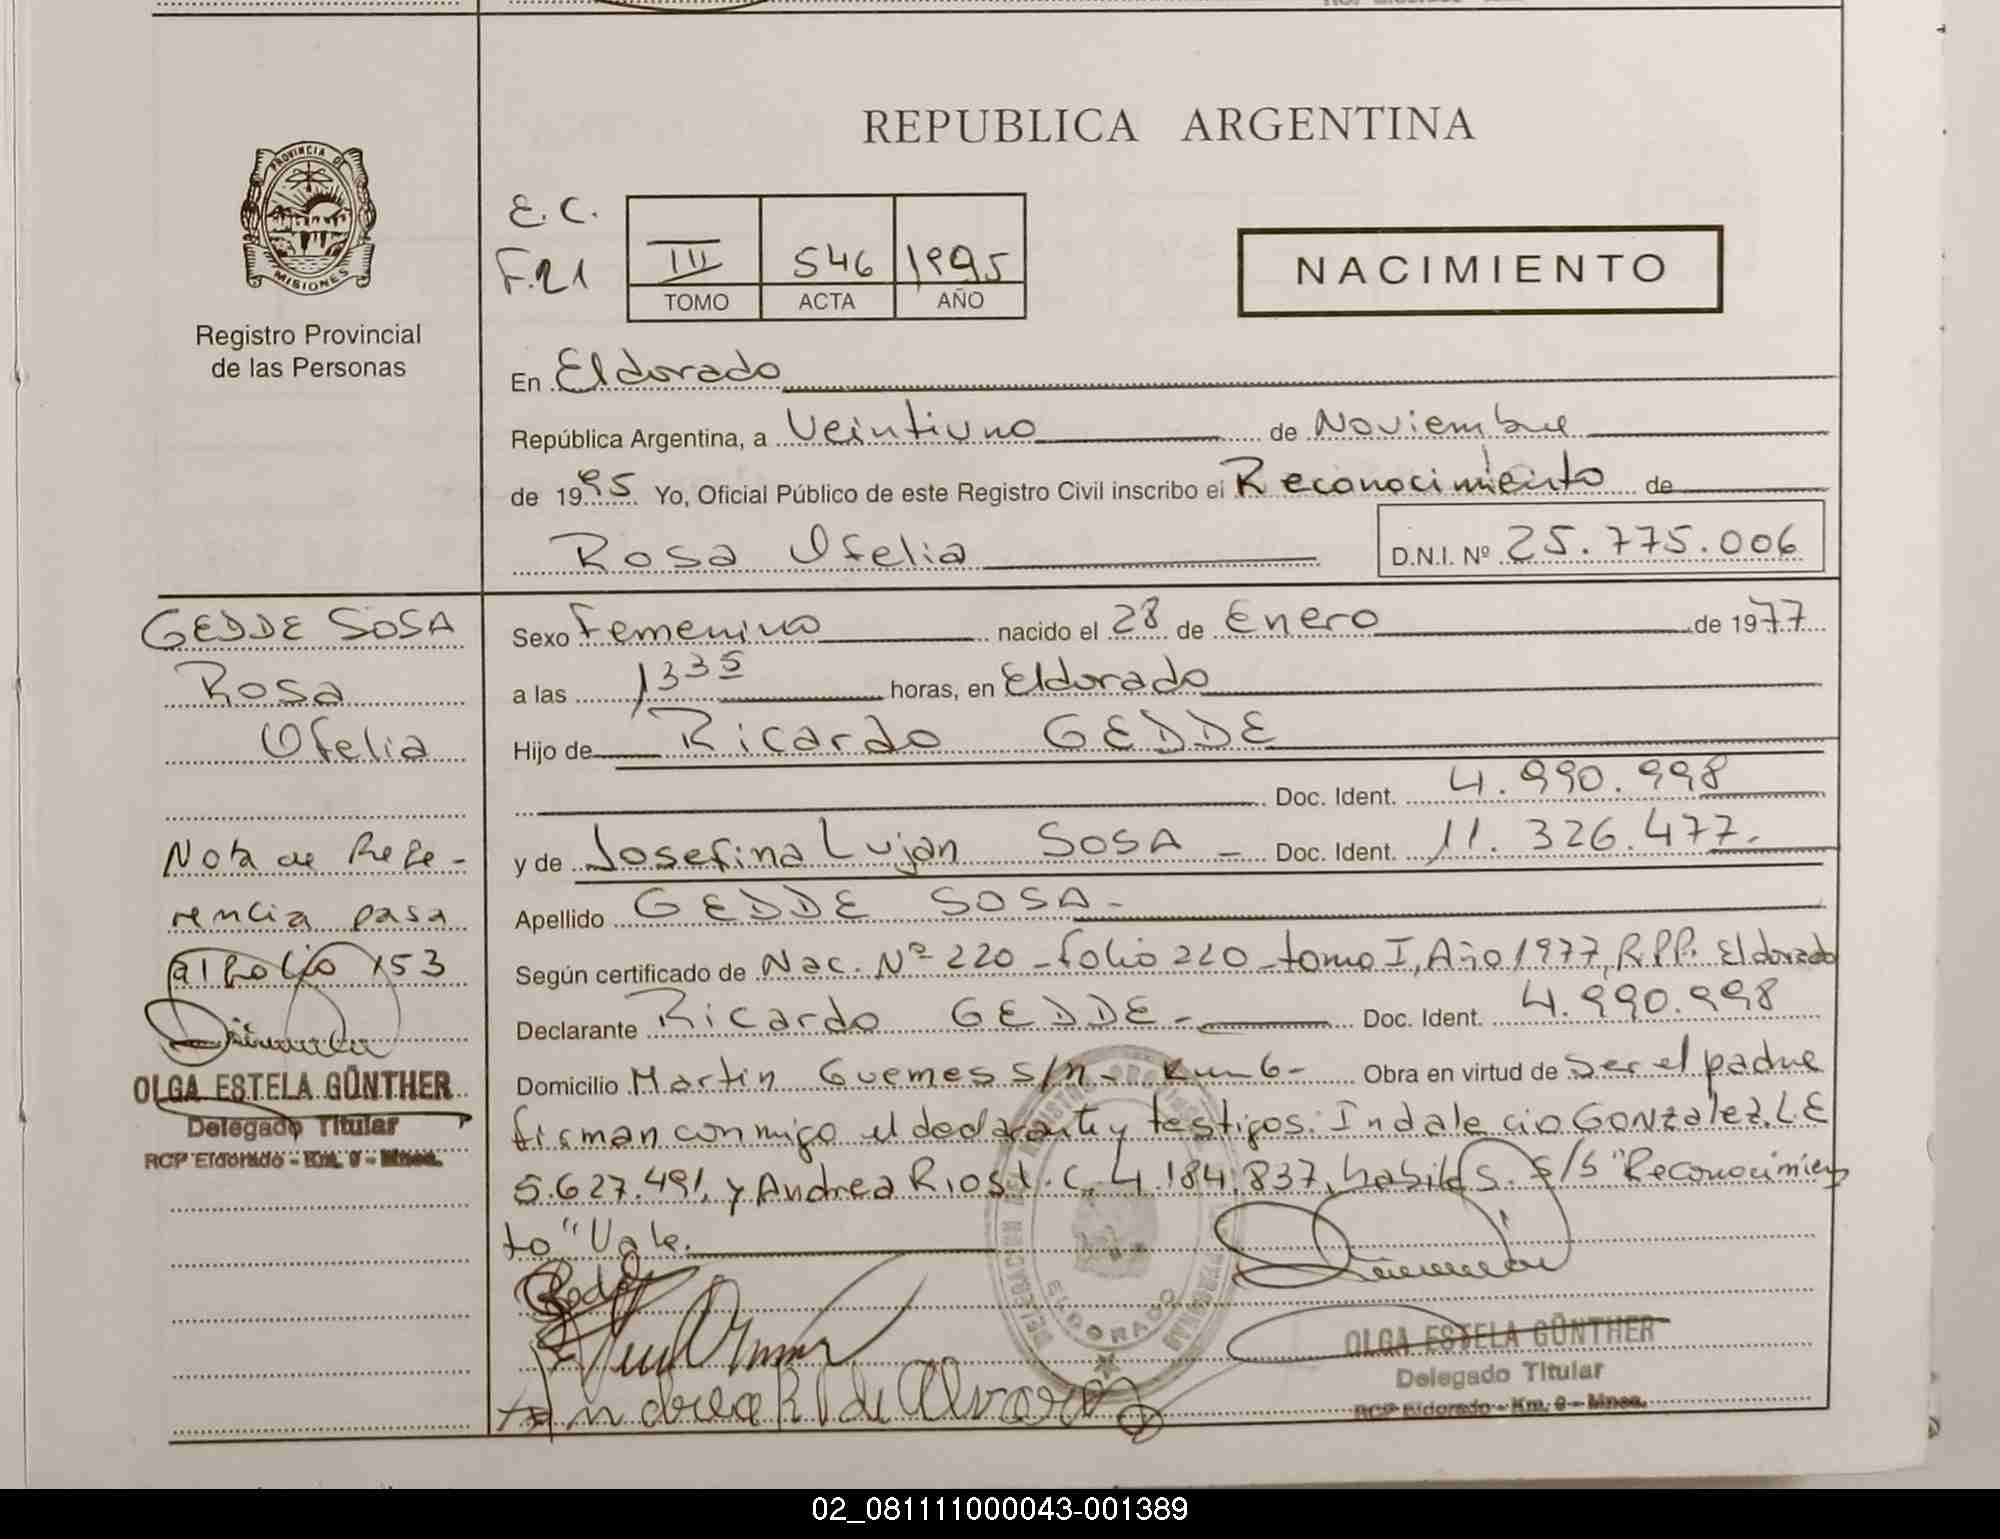 REPUBLICA ARGENTINA
PROVINCIA DE
MISIONES
Registro Provincial
de las Personas
E.C.
F.21
III 546 1995
TOMO ACTA AÑO
NACIMIENTO
En Eldorado
República Argentina, a Veintiuno de Noviembre
de 1995 Yo, Oficial Público de este Registro Civil inscribo el Reconocimiento de
Rosa Ofelia D.N.I. Nº 25.775.006
GEDDE SOSA
Rosa
Ofelia
Nota de Refe-
rencia pasa
al folio 153
OLGA ESTELA GÜNTHER
Delegado Titular
RCP Eldorado - Km. 9 - Mnes.
Sexo Femenino nacido el 28 de Enero de 1977
a las 13 35 horas, en Eldorado
Hijo de Ricardo GEDDE
Doc. Ident. 4.990.998
y de Josefina Lujan SOSA - Doc. Ident. 11.326.477.
Apellido GEDDE SOSA-
Según certificado de Nac. Nº 220 - folio 220 - tomo I, Año 1977, R.P.P. Eldorado
Declarante Ricardo GEDDE - Doc. Ident. 4.990.998
Domicilio Martin Guemes s/n - Km 6 - Obra en virtud de ser el padre
firman conmigo el declarante y testigos: Indalecio GONZalez, L.E
5.627.491, y Andrea Rios L.C. 4.184.837, habiles. S/S "Reconocimien
to" Vale.
Andrea R de Alvarez
ELDORADO
OLGA ESTELA GÜNTHER
Delegado Titular
RCP Eldorado - Km. 9 - Mnes.
02_081111000043-001389